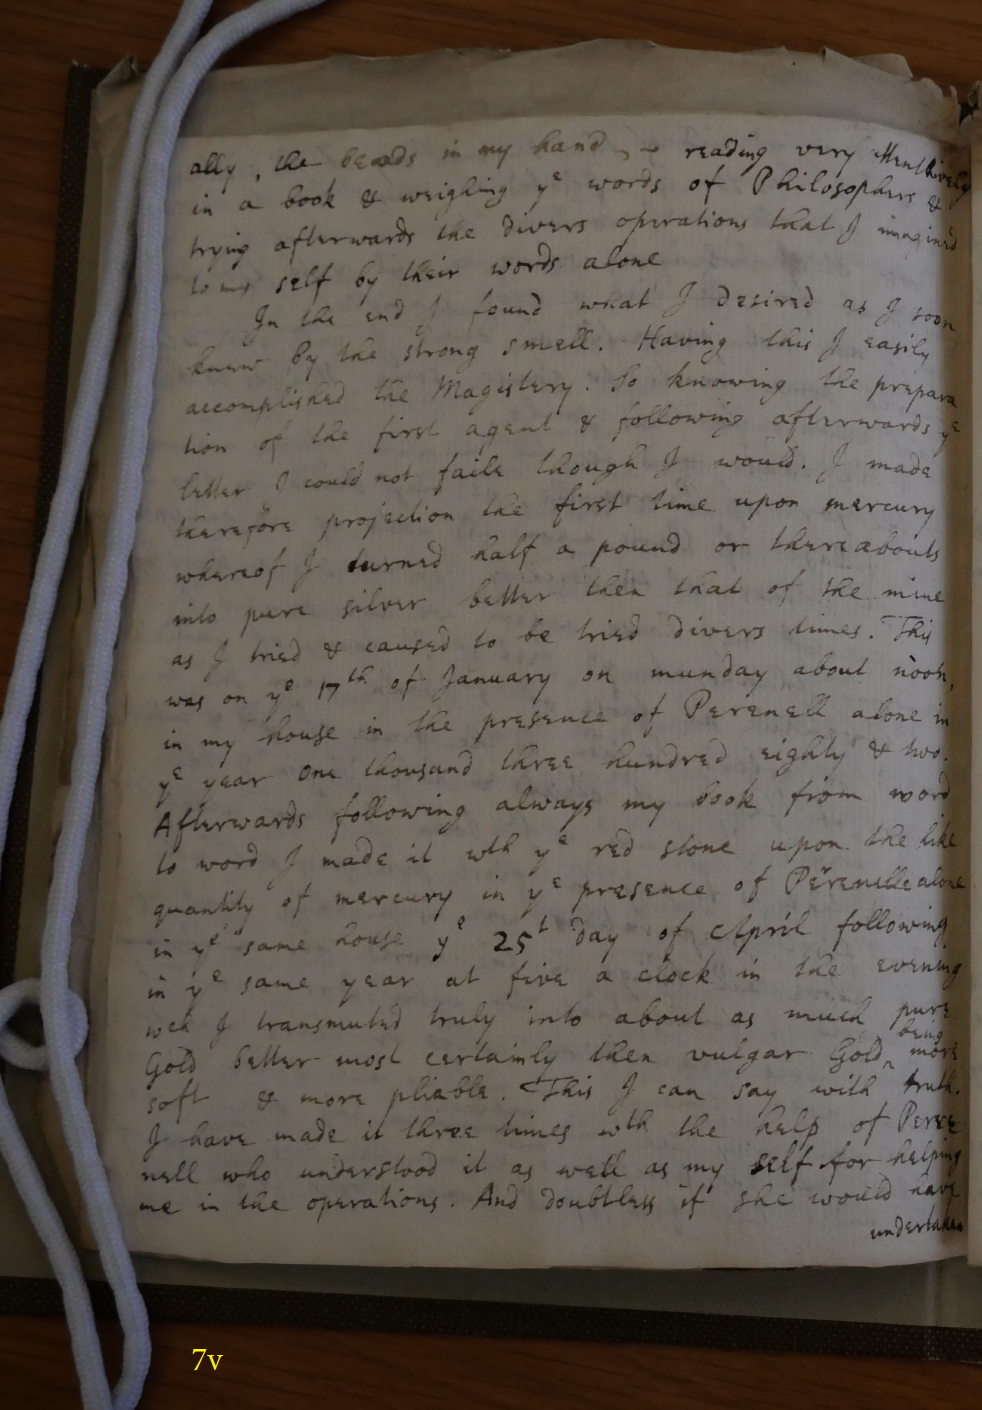 ally, the beads in my hand, reading very attentively
in a book & weighing yᵉ words of Philosophers &
trying afterwards the divers operations that I imagined
to my self by their words alone
In the end I found what I desired as I soon
knew by the strong smell. Having this I easily
accomplished the Magistery. So knowing the prepara
tion of the first agent & following afterwards yᵉ
letter I could not faile though I would. I made
therefore projection the first time upon mercury
whereof I turned half a pound or thereabouts
into pure silver better then that of the mine
as I tried & caused to be tried divers times. This
was on yᵉ 17ᵗʰ of January on munday about noon,
in my house in the presence of Perenell alone in
yᵉ year one thousand three hundred eighty & two.
Afterwards following always my book from word
to word I made it wth yᵉ red stone upon the like
quantity of mercury in yᵉ presence of Perenelle alone
in yᵉ same house yᵉ 25ᵗ day of April following
in yᵉ same year at five a clock in the evening
wch I transmuted truly into about as much pure
Gold better most certainly then vulgar Gold, being more
soft & more pliable. This I can say with truth.
I have made it three times wth the help of Pere
nell who understood it as well as my self for helping
me in the operations. And doubtless if she would have
undertaken
7v